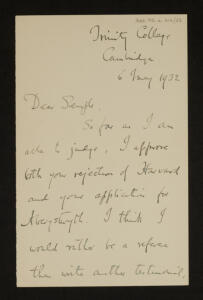 Trinity College
Cambridge
6 May 1932
Dear Sengfe.
So far as I am
able to judge, I approve
both your rejection of Harvard
and your application for
Aberystwyth. I think I
would rather be a referee
than write another testimonial,